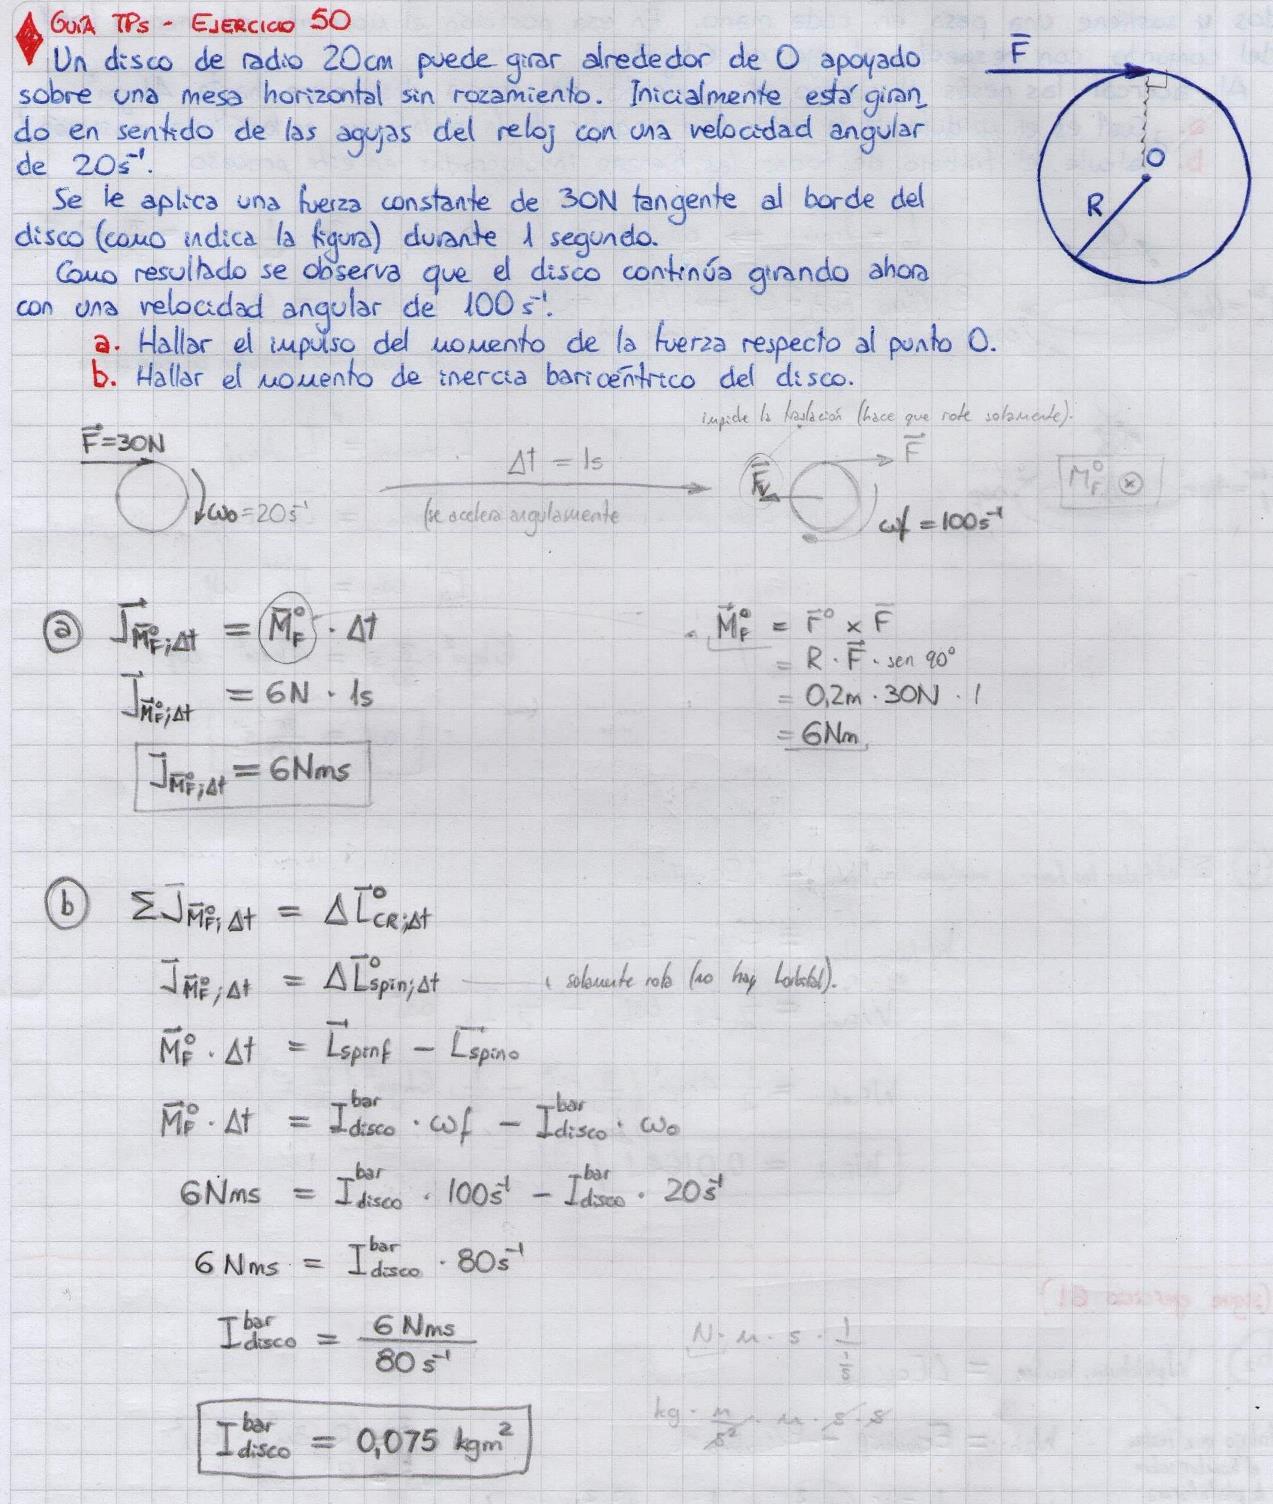 GUÍA TPs - EJERCICIO 50
Un disco de radio 20cm puede girar alrededor de O apoyado
sobre una mesa horizontal sin rozamiento. Inicialmente está giran
do en sentido de las agujas del reloj con una velocidad angular
de 20s⁻¹.
Se le aplica una fuerza constante de 30N tangente al borde del
disco (como indica la figura) durante 1 segundo.
Como resultado se observa que el disco continúa girando ahora
con una velocidad angular de 100s⁻¹.
a. Hallar el impulso del momento de la fuerza respecto al punto O.
b. Hallar el momento de inercia baricéntrico del disco.
F̄
O
R
impide la traslación (hace que rote solamente).
F⃗=30N
ω₀=20s⁻¹
Δt = 1s
(se acelera angularmente
F⃗v
F⃗
ωf = 100s⁻¹
M_F^o ⊗
a J⃗_M̄F°;Δt = M̄_F^o · Δt
J⃗_M̄F°;Δt = 6N · 1s
J̄_M̄F°;Δt = 6Nms
M⃗_F^o = r̄^o × F̄
= R · F⃗ · sen 90°
= 0,2m · 30N · 1
= 6Nm
b ΣJ̄_M̄F°;Δt = ΔL̄^o_CR;Δt
J̄_M̄F°;Δt = ΔL̄^o_spin;Δt solamente rota (no hay Lorbital).
M̄_F^o · Δt = L̄spinf - L̄spin₀
M̄_F^o · Δt = I^bar_disco · ωf - I^bar_disco · ω₀
6Nms = I^bar_disco · 100s⁻¹ - I^bar_disco · 20s⁻¹
6Nms = I^bar_disco · 80s⁻¹
I^bar_disco = 6Nms / 80s⁻¹
N · m · s · 1 / (1/s)
kg · m/s² · m · s · s
I^bar_disco = 0,075 kgm²